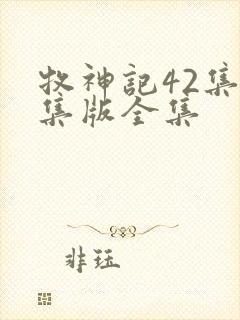 牧神記42集
集版全集
非珏